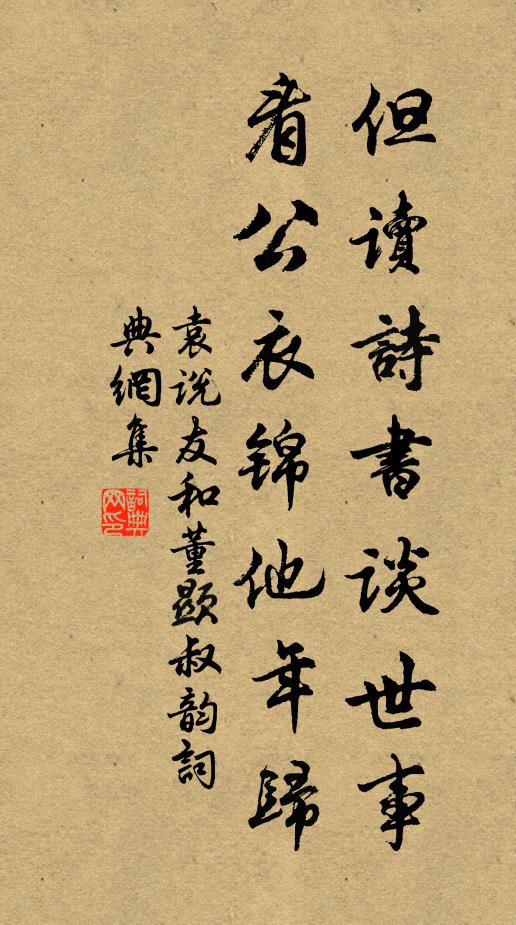 但讀詩書談世事
看公衣錦他年歸
袁説友和董顯叔韵詞
典網集
詞典網印